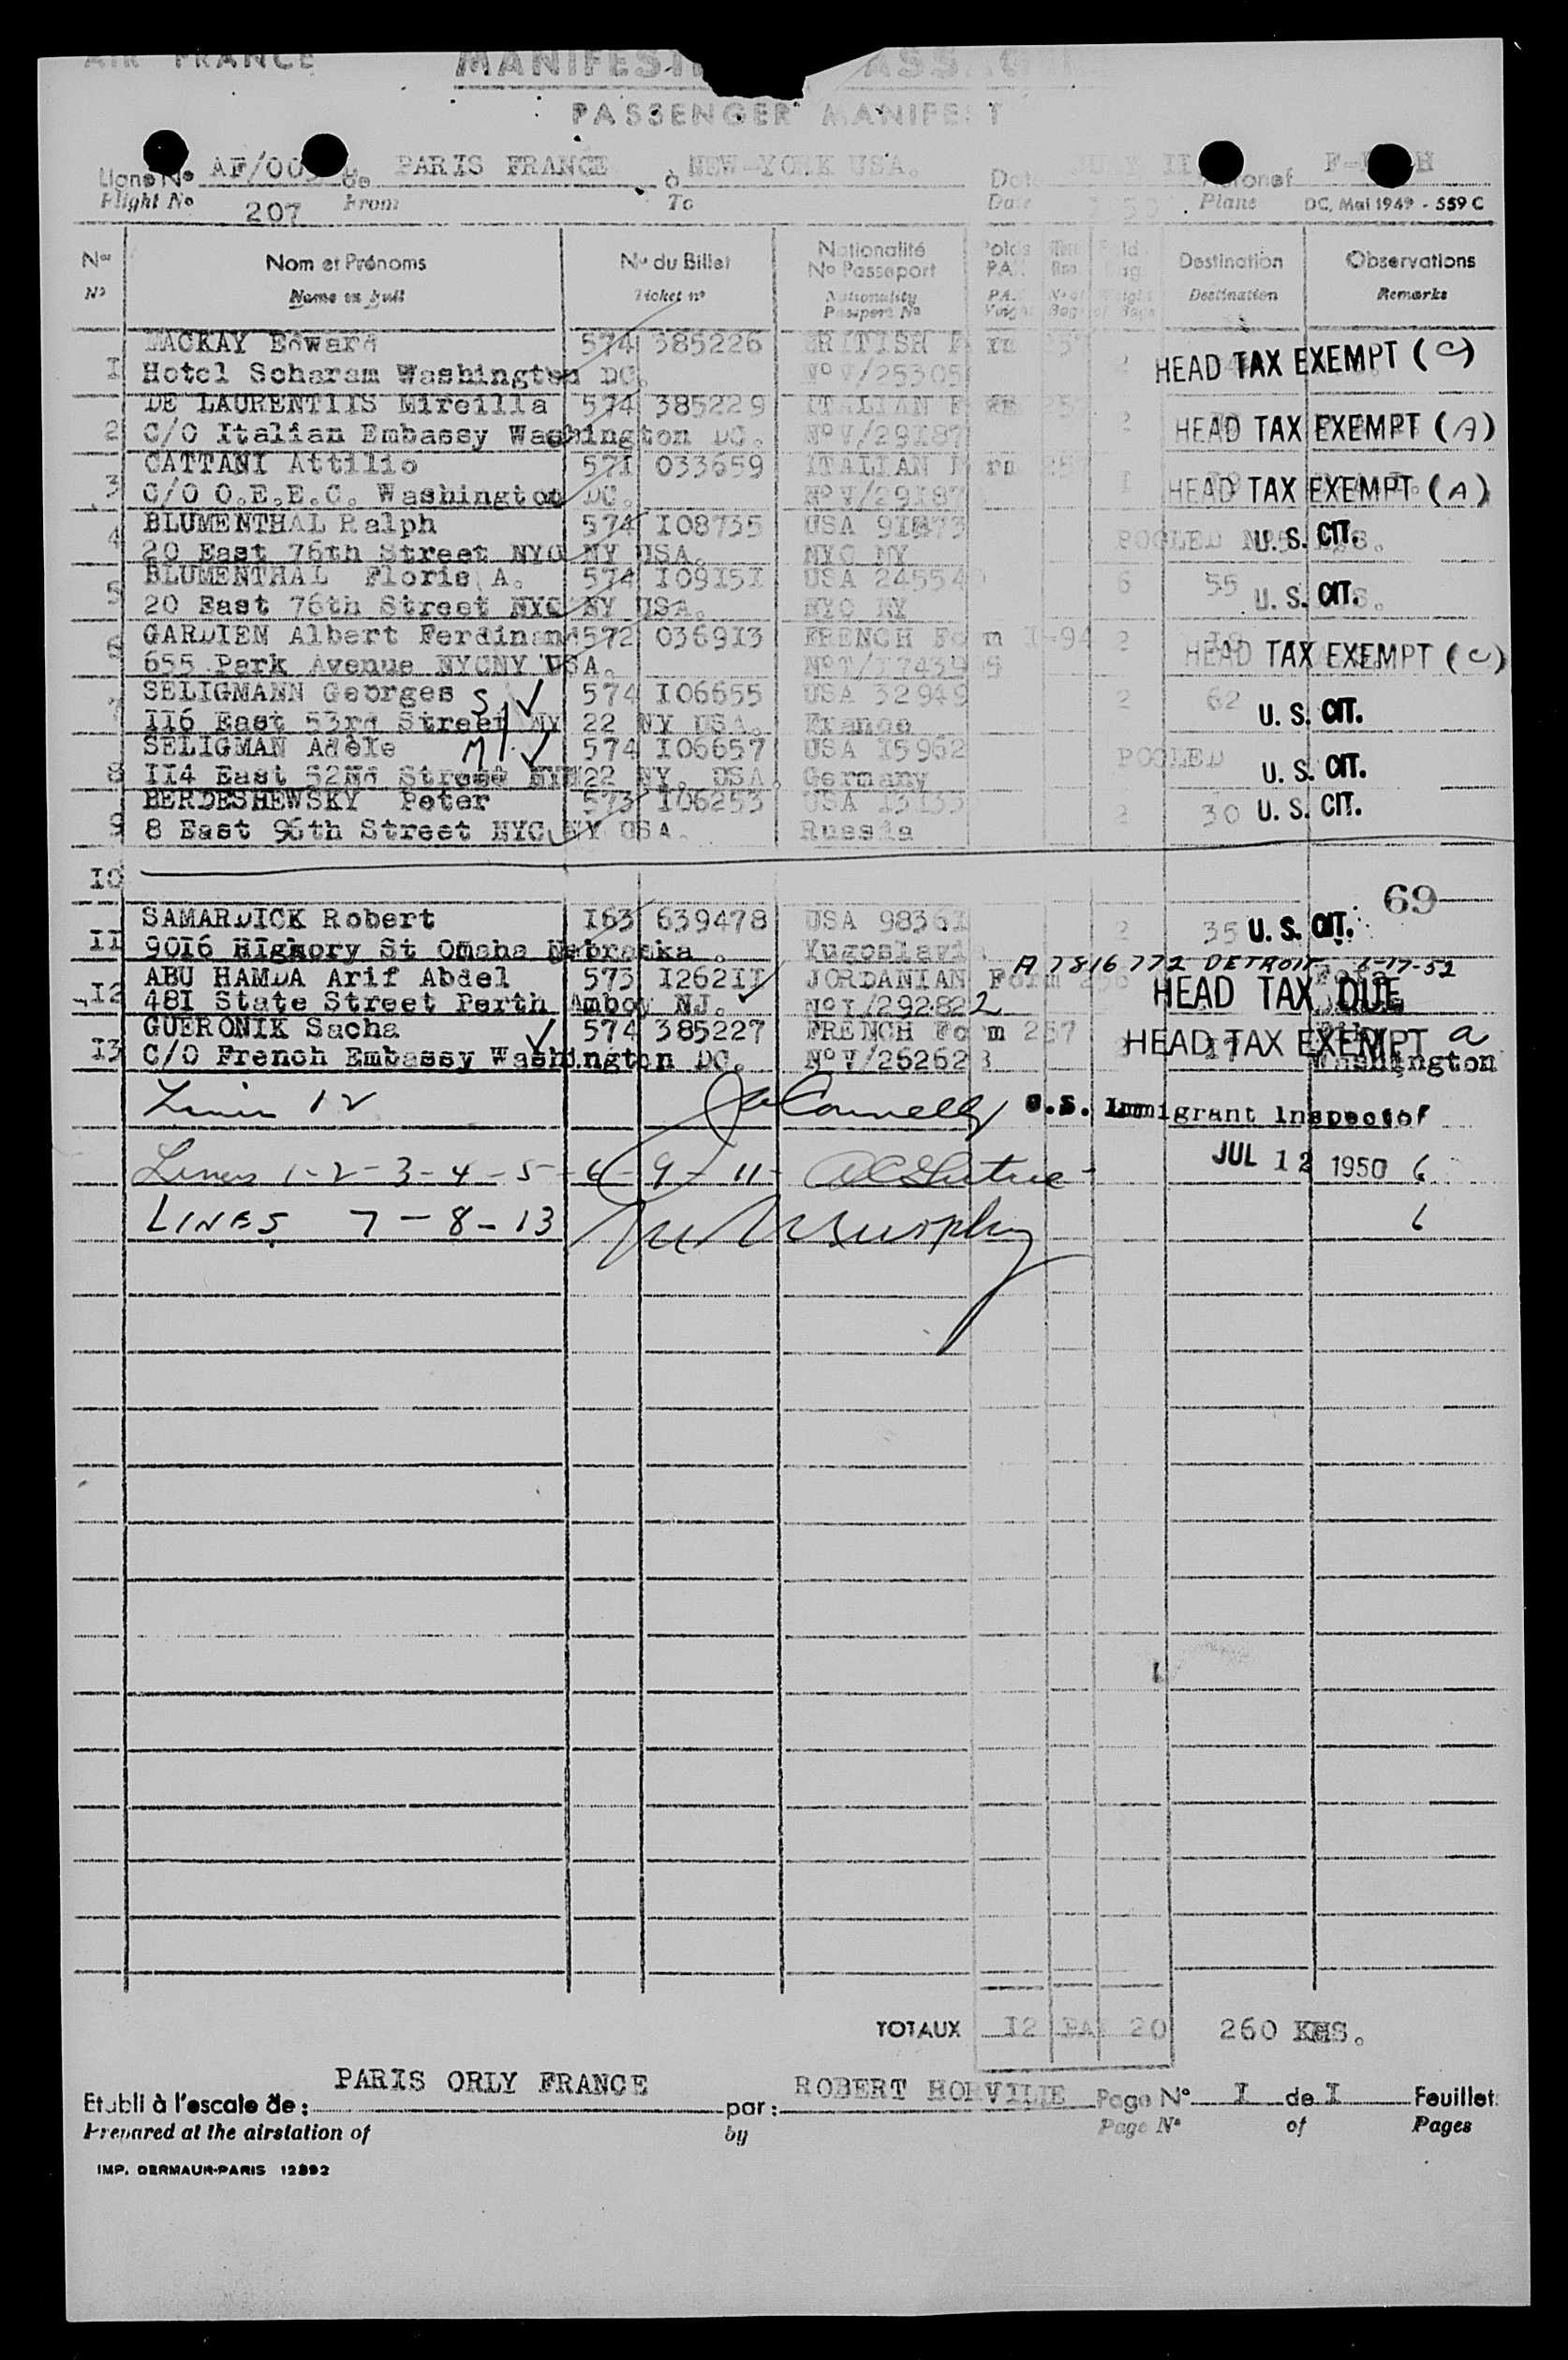 AIR FRANCE
PASSENGER MANIFEST
Ligne No AF/00 de PARIS FRANCE à NEW-YORK USA. Date II
Flight No 207 From To Date Plane DC, Mai 1949 - 559 C
Nos Nom et Prénoms No du Billet Nationalité No Passeport Destination Observations
No Name in full Ticket no Nationality Passport No Destination Remarks
MACKAY Edward 574 385226 BRITISH
I Hotel Scharam Washington DC. No V/25305 HEAD TAX EXEMPT (C)
DE LAURENTIIS Mireilla 574 385229 ITALIAN
2 C/O Italian Embassy Washington DC. No V/29187 2 HEAD TAX EXEMPT (A)
CATTANI Attilio 571 033659 ITALIAN
3 C/O O.E.E.C. Washington DC. No V/29187 I HEAD TAX EXEMPT (A)
BLUMENTHAL Ralph 574 I08735 USA
4 20 East 76th Street NYC NY USA. NYC NY POOLED U. S. CIT.
BLUMENTHAL Floris A. 574 I09I5I USA 24554 6 55
5 20 East 76th Street NYC NY USA. NYC NY U. S. CIT.
GARDIEN Albert Ferdinand 572 0369I3 FRENCH Form I-94 2
6 655 Park Avenue NYCNY USA. HEAD TAX EXEMPT (C)
SELIGMANN Georges S 574 I06655 USA 32949 2 62
7 II6 East 53rd Street NY 22 NY USA. France U. S. CIT.
SELIGMAN Adele M 574 I06657 USA I5962 POOLED
8 II4 East 52nd Street NYC 22 NY. USA. Germany U. S. CIT.
BERDESHEWSKY Peter 573 I06253 USA 2 30 U. S. CIT.
9 8 East 96th Street NYC NY USA. Russia
I0
69
SAMARDICK Robert I63 639478 USA 9836I 2 35 U. S. CIT.
II 90I6 HIgkory St Omaha Nebraska . Yugoslavia
A 7816 772 DETROIT 6-17-52
ABU HAMDA Arif Abdel 573 I262II JORDANIAN Form 256
I2 48I State Street Perth Amboy NJ. No I/292822 HEAD TAX DUE
GUERONIK Sacha 574 385227 FRENCH Form 257
I3 C/O French Embassy Washington DC. No V/26262 HEAD TAX EXEMPT a
Washington
Line 12 U.S. Immigrant Inspector
Lines 1-2-3-4-5-6-9-11- JUL 12 1950 6
LINES 7-8-13 Murphy 6
TOTAUX I2 PAX 20 260 KGS.
Etabli à l'escale de: PARIS ORLY FRANCE par: ROBERT HORVILLE Page No I de I Feuillets
Prepared at the airstation of by Page No of Pages
IMP. DERMAUR-PARIS 12892